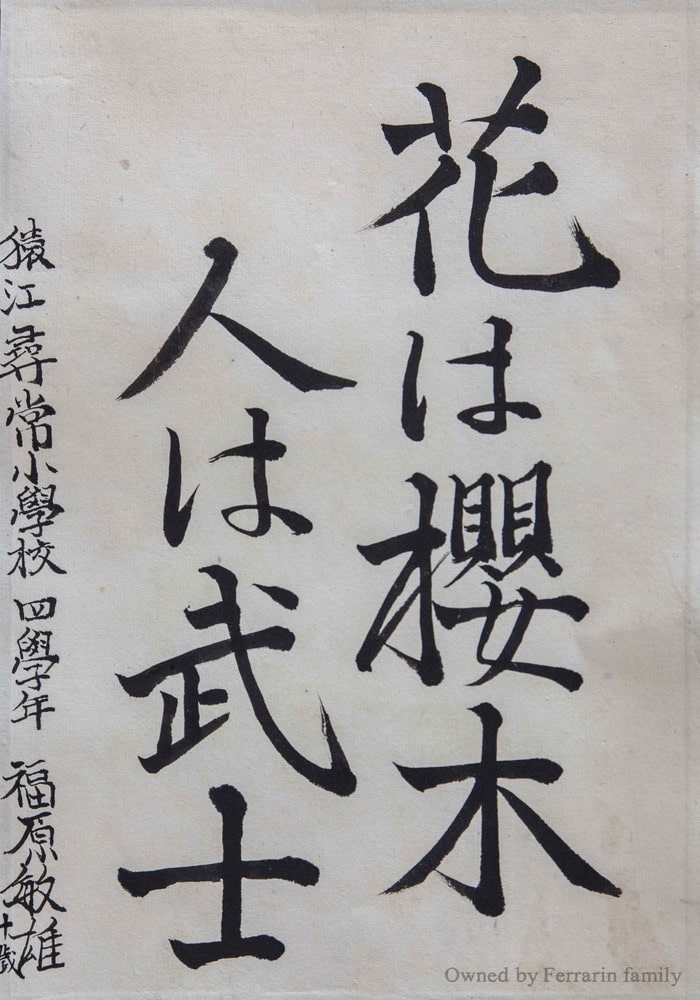 花は櫻木
人は武士
猿江尋常小學校 四學年 福原敏雄 十歳
Owned by Ferrarin family